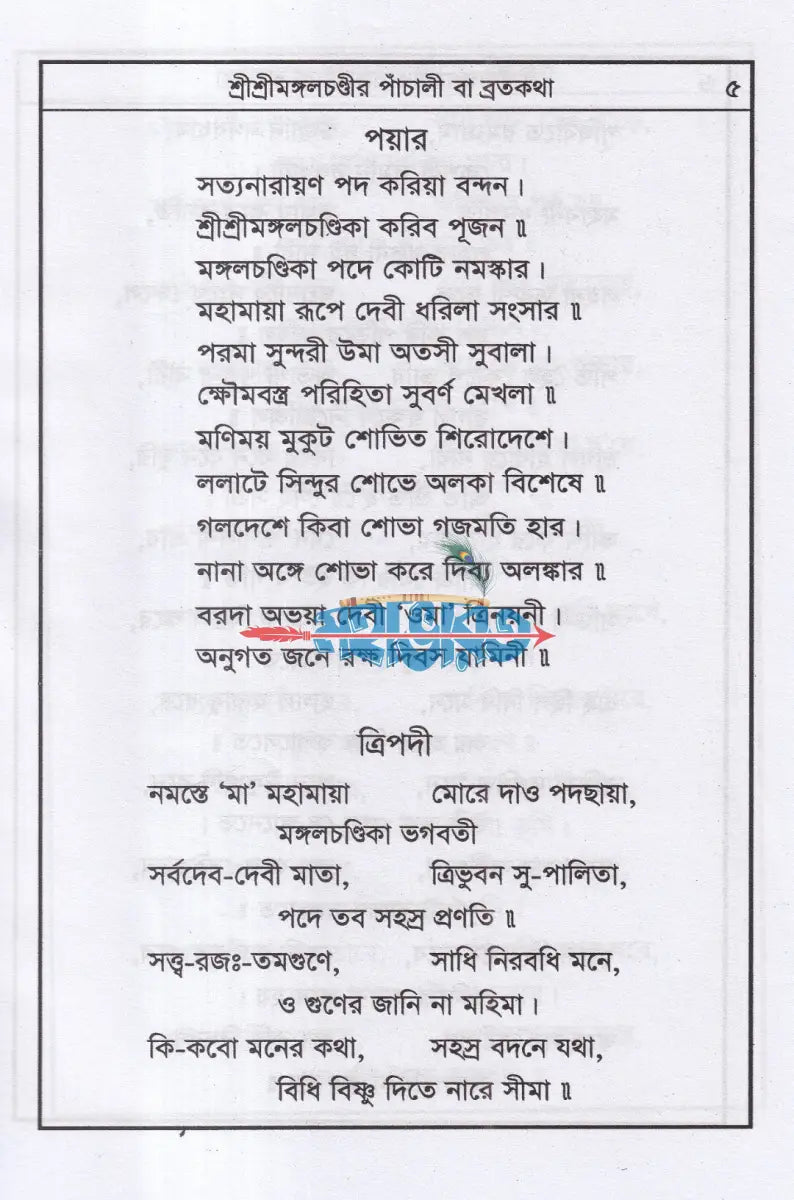 শ্রীশ্রীমঙ্গলচণ্ডীর পাঁচালী বা ব্রতকথা ৫
পয়ার
সত্যনারায়ণ পদ করিয়া বন্দন।
শ্রীশ্রীমঙ্গলচণ্ডিকা করিব পূজন॥
মঙ্গলচণ্ডিকা পদে কোটি নমস্কার।
মহামায়া রূপে দেবী ধরিলা সংসার॥
পরমা সুন্দরী উমা অতসী সুবালা।
ক্ষৌমবস্ত্র পরিহিতা সুবর্ণ মেখলা॥
মণিময় মুকুট শোভিত শিরোদেশে।
ললাটে সিন্দুর শোভে অলকা বিশেষে॥
গলদেশে কিবা শোভা গজমতি হার।
নানা অঙ্গে শোভা করে দিব্য অলঙ্কার॥
বরদা অভয়া দেবী ‘ওমা’ ত্রিনয়নী।
অনুগত জনে রক্ষ দিবস যামিনী॥
ত্রিপদী
নমস্তে ‘মা’ মহামায়া মোরে দাও পদছায়া,
মঙ্গলচণ্ডিকা ভগবতী
সর্বদেব-দেবী মাতা, ত্রিভুবন সু-পালিতা,
পদে তব সহস্র প্রণতি॥
সত্ত্ব-রজঃ-তমগুণে, সাধি নিরবধি মনে,
ও গুণের জানি না মহিমা।
কি-কবো মনের কথা, সহস্র বদনে যথা,
বিধি বিষ্ণু দিতে নারে সীমা॥